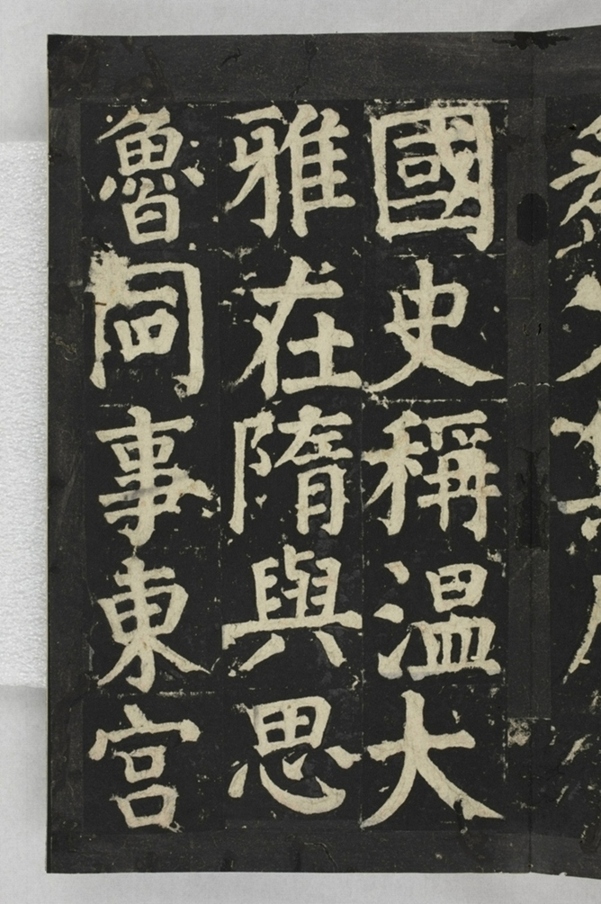 國史稱溫大
雅在隋與思
魯同事東宮